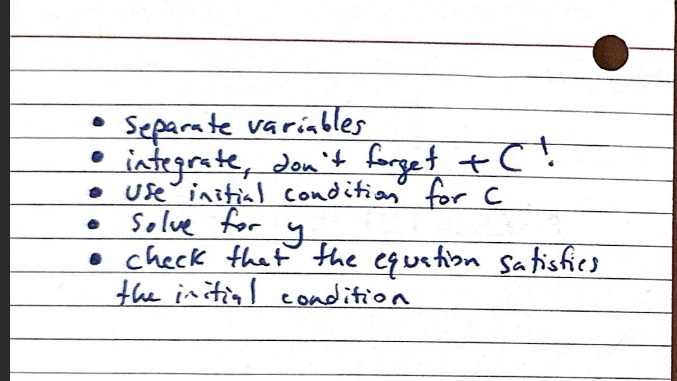 • Separate variables
• integrate, don't forget + C!
• use initial condition for C
• Solve for y
• check that the equation satisfies
the initial condition